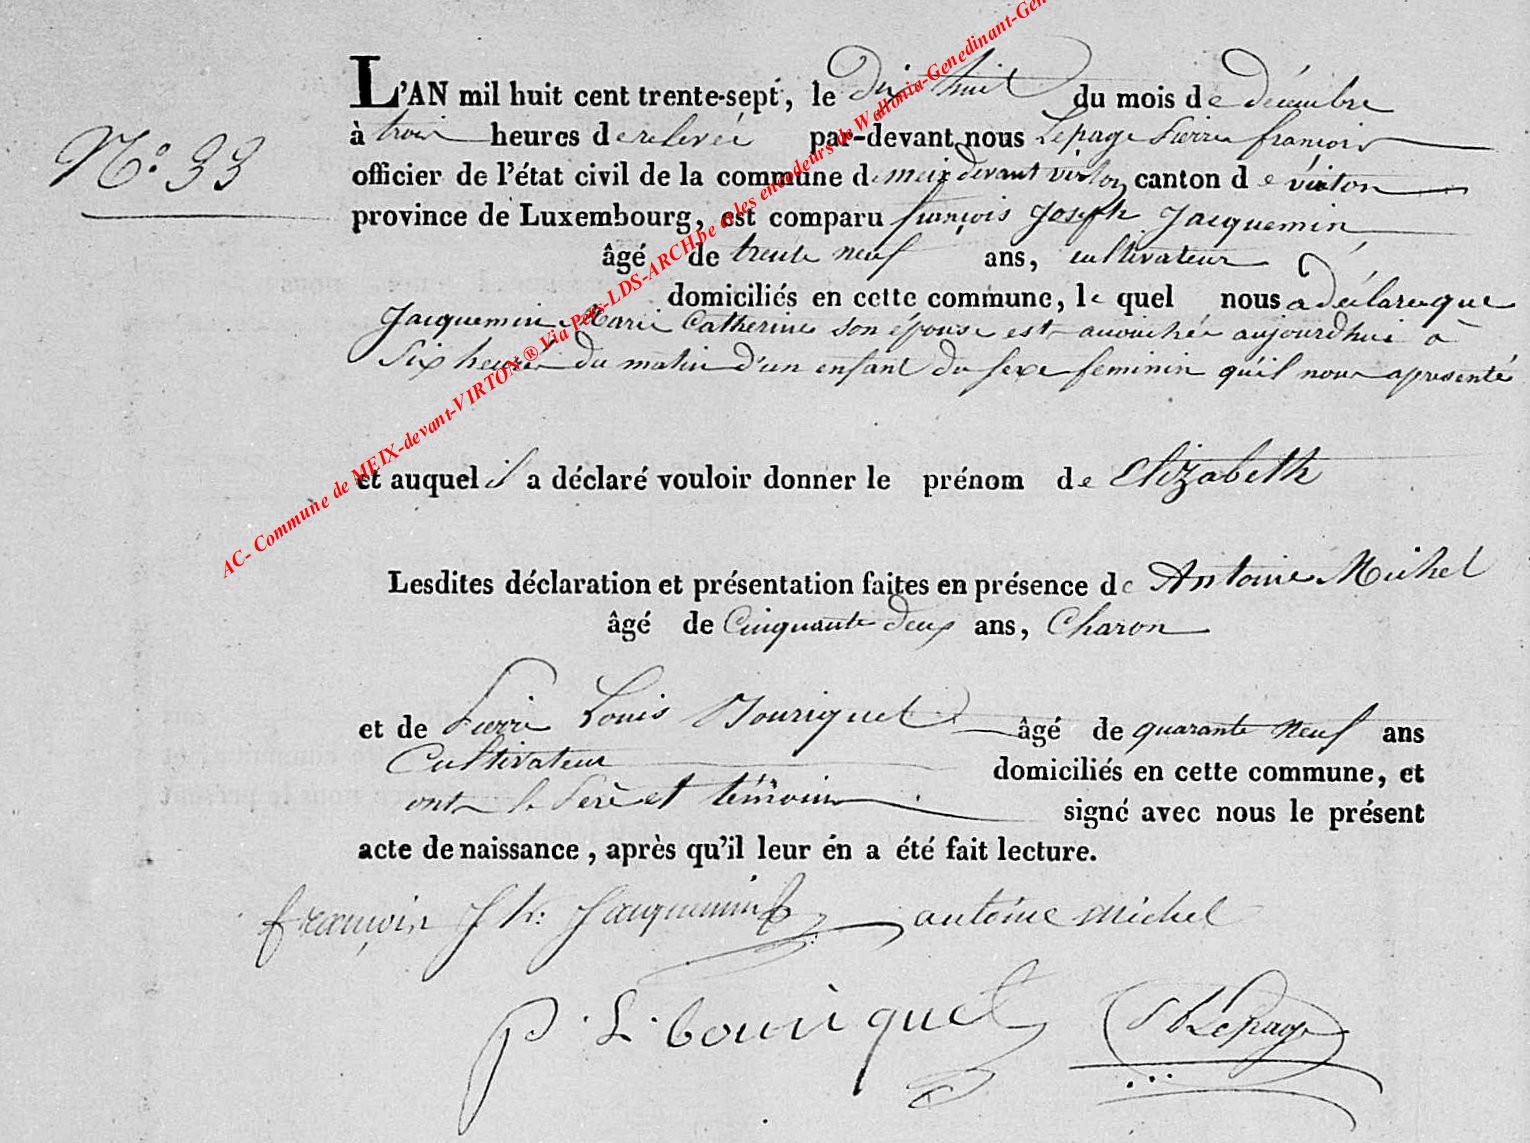 L'AN mil huit cent trente-sept, le Dix huit du mois de décembre
N.° 33
à trois heures de relevée par-devant nous Lepage Pierre françois
officier de l'état civil de la commune de meix devant virton canton de virton
province de Luxembourg, est comparu françois Joseph Jacquemin
âgé de trente neuf ans, cultivateur
domiciliés en cette commune, le quel nous a déclare que
Jacquemin Marie Catherine son épouse est accouchée aujourdhui à
Six heures du matin d'un enfant du sexe feminin qu'il nous apresenté
et auquel il a déclaré vouloir donner le prénom de Elizabeth
Lesdites déclaration et présentation faites en présence de Antoine Michel
âgé de Cinquante deux ans, Charon
et de Pierre Louis Bouriquet âgé de quarante neuf ans
Cultivateur domiciliés en cette commune, et
ont le Perè et témoins signé avec nous le présent
acte de naissance, après qu'il leur én a été fait lecture.
françois Jh: Jacquemin antoine Michel
P. L. bouriquet Lepage
AC- Commune de MEIX-devant-VIRTON ® Via Pers-LDS-ARCH.be et les encodeurs de Wallonia-Genedinant-Gen